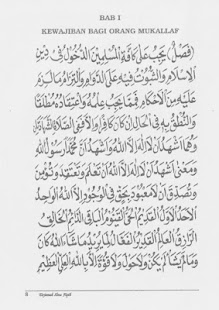 BAB I
KEWAJIBAN BAGI ORANG MUKALLAF
(فصل) يجب على كافة المكلفين الدخول فى دين
الاسلام والثبوت فيه على الدوام والتزام مالزم
عليه من الاحكام فمما يجب علمه واعتقاده مطلقا
والنطق به فى الحال ان كان كافرا والا ففى الصلاة الشهادتان
وهما اشهد ان لااله الا الله واشهد ان محمدا رسول الله
ومعنى اشهد ان لااله الا الله ان تعلم وتعتقد وتؤمن
وتصدق ان لا معبود بحق فى الوجود الا الله الواحد
الاحد الاول القديم الحي القيوم الباقى الدائم الخالق
الرازق العالم القدير الفعال لما يريد ما شاء الله كان
ومالم يشأ لم يكن ولاحول ولا قوة الا بالله العلي العظيم
8 Terjemah